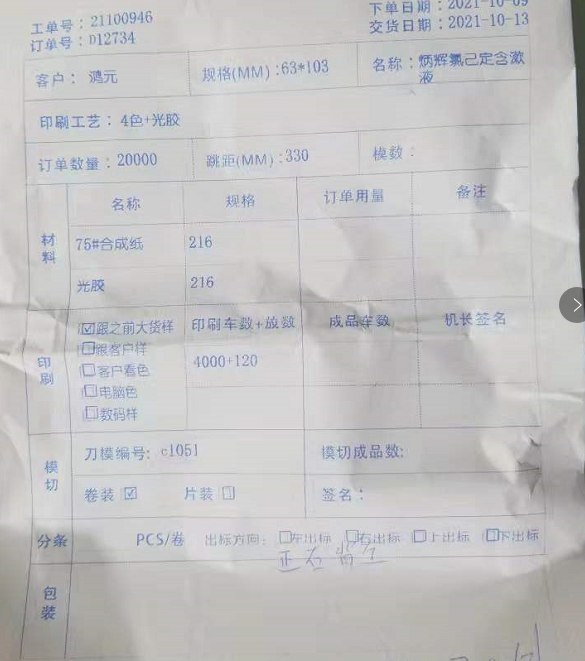 工单号：21100946
下单日期：2021-10-09
订单号：D12734
交货日期：2021-10-13
客户： 鸿元
规格(MM)：63*103
名称：炳辉氯己定含漱液
印刷工艺：4色+光胶
订单数量：20000
跳距(MM)：330
模数：
材料
名称
规格
订单用量
备注
75#合成纸
216
光胶
216
印刷
☑跟之前大货样
印刷车数+放数
成品车数
机长签名
☐跟客户样
4000+120
☐客户看色
☐电脑色
☐数码样
模切
刀模编号: c1051
模切成品数:
卷装 ☑
片装 ☐
签名：
分条
PCS/卷
出标方向：☐左出标 ☐右出标 ☐上出标 ☐下出标
包装